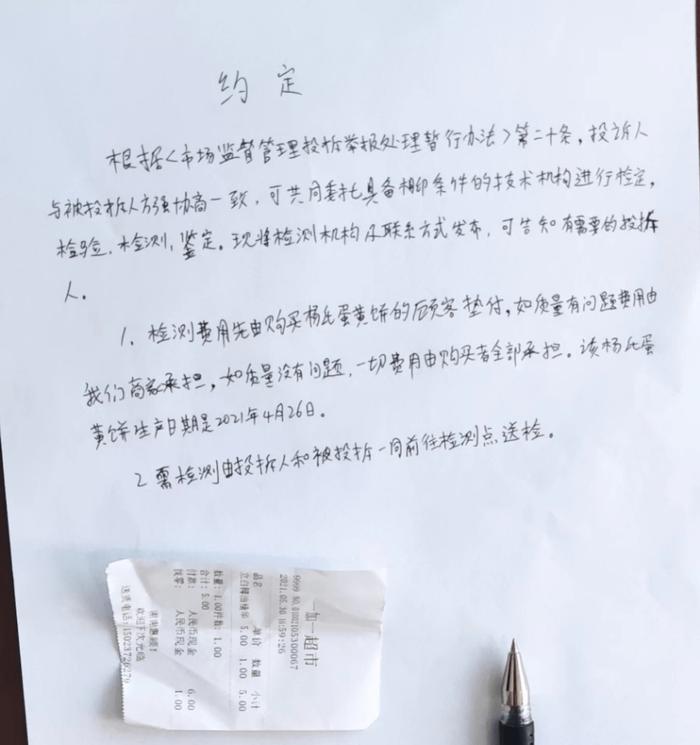 约定
根据《市场监督管理投拆举报处理暂行办法》第二十条，投诉人
与被投拆人方强协商一致，可共同委托具备相印条件的技术机构进行检定，
检验，检测，鉴定。现将检测机构及联系方式发布，可告知有需要的投拆
人。
1. 检测费用先由购买杨氏蛋黄饼的顾客垫付，如质量有问题费用由
我们商家承担，如质量没有问题，一切费用由购买者全部承担。该杨氏蛋
黄饼生产日期是2021年4月26日。
2 需检测由投拆人和被投拆一同前往检测点送检。
一加一超市
2021.05.30 18:59:26
品名 单价 数量 小计
5.00 1.00 5.00
数量: 1.00件数: 1.00
合计: 5.00
付款: 人民币现金 6.00
找零: 人民币现金 1.00
谢谢惠顾!
欢迎下次光临